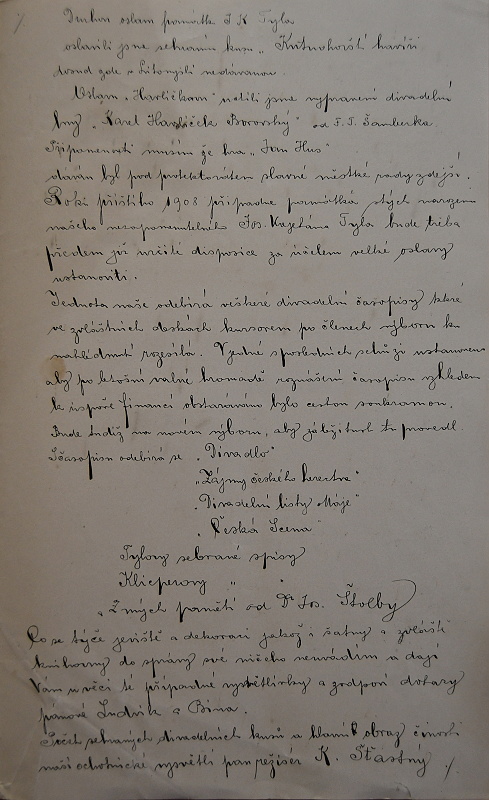 Druhou oslavu památky J. K. Tyla
oslavili jsme sehráním kusu „Kutnohorští havíři
dosud zde v Litomyšli nedávanou.
Oslavu „Havlíčkovu" uctili jsme vypravení divadelní
hry „Karel Havlíček Borovský" od F. F. Šamberka.
Připomenouti musím že hra „Jan Hus"
dáván byl pod protektorátem slavné městské rady zdejší.
Roku příštího 1908 připadne památka stých narozenin
našeho nezapomenutelného Jos. Kajetána Tyla bude třeba
předem již určité disposice za účelem velké oslavy
ustanoviti.
Jednota naše odebírá veškeré divadelní časopisy které
ve zvláštních deskách kursorem po členech výboru ku
nahlédnutí rozesílá. V jedné z posledních schůzí ustanoveno
aby po letošní valné hromadě roznášení časopisu vzhledem
k úspoře financí obstaráváno bylo cestou soukromou.
Bude tudíž na novém výboru, aby záležitost tu provedl.
Z časopisu odebírá se „Divadlo"
„Zájmy českého herectva"
„Divadelní listy Máje"
„Česká Scena"
Tylovy sebrané spisy
Klicperovy " "
„Z mých pamětí od Dr Jos. Štolby
Co se týče jeviště a dekorací jakož i šatny a zvláště
knihovny do zprávy své ničeho neuvádím a dají
Vám u věci té případné vysvětlivky a zodpoví dotazy
pánové Ludvík a Bína.
Počet sehraných divadelních kusů a hlavně obraz činnosti
naší ochotnické vysvětlí pan režisér K. Šťastný ./.